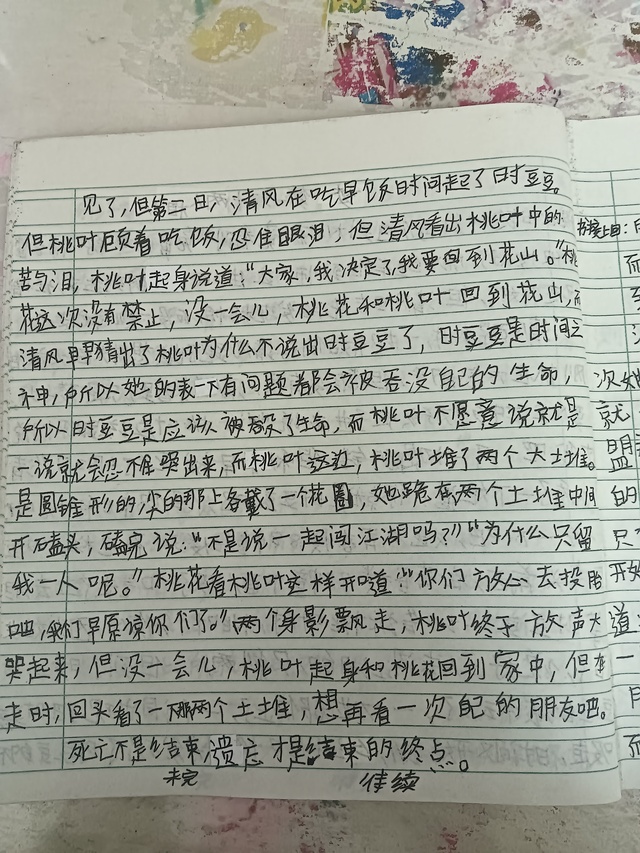 见了，但第二日，清风在吃早饭时问起了时豆豆。
但桃叶顾着吃饭，忍住眼泪，但清风看出桃叶中的
苦与泪，桃叶起身说道：“大家，我决定了，我要回到花山。”桃
花这次没有禁止，没一会儿，桃花和桃叶回到花山，而
清风早早猜出了桃叶为什么不说出时豆豆了，时豆豆是时间之
神，所以她的表一下有问题者都会被吞没自己的生命，
所以时豆豆是应该人被吞没了生命，而桃叶不愿意说就是
一说就会忍不住哭出来，而桃叶这边，桃叶堆了两个大土堆。
是圆锥形的，尖的那上各戴了一个花圈，她跪在两个土堆中间
开磕头，磕完说：“不是说一起闯江湖吗？”“为什么只留
我一人呢。”桃花看桃叶这样开道：“你们放心去投胎
吧，我们早原谅你们了。”两个身影飘走，桃叶终于放声大
哭起来，但没一会儿，桃叶起身和桃花回到家中，但在
走时，回头看了一下那两个土堆，想再看一次自己的朋友吧。
死亡不是结束，遗忘才是结束的终点。
未完 待续
书接上回：
而
至
次她
就
盟
的
只
开始
道：
而